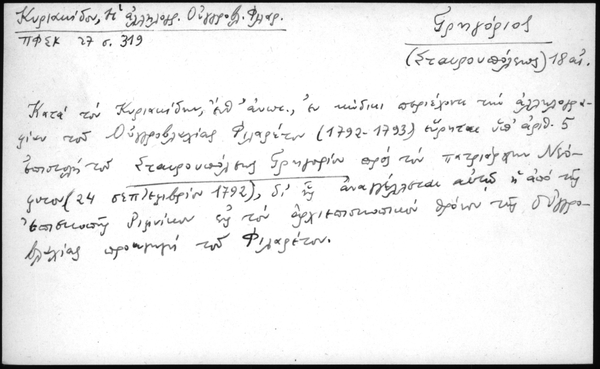 Κυριακίδου, Ἡ ἀλληλογρ. Οὑγγροβλ. Φιλαρ.
ΠΦΣΚ 27 σ. 319
Γρηγόριος
(Σταυρουπόλεως) 18 αἰ.
Κατὰ τὸν Κυριακίδην, ἔνθ' ἀνωτ., ἐν κώδικι περιέχοντι τὴν ἀλληλογρα-
φίαν τοῦ Οὑγγροβλαχίας Φιλαρέτου (1792-1793) εὕρηται ὑπ' ἀριθ. 5
ἐπιστολὴ τοῦ Σταυρουπόλεως Γρηγορίου πρὸς τὸν πατριάρχην Νεό-
φυτον (24 σεπτεμβρίου 1792), δι' ἧς ἀναγγέλλεται αὐτῷ ἡ ἀπὸ τῆς
ἐπισκοπῆς Ριμνίκου εἰς τὸν ἀρχιεπισκοπικὸν θρόνον τῆς Οὑγγρο-
βλαχίας προαγωγὴ τοῦ Φιλαρέτου.